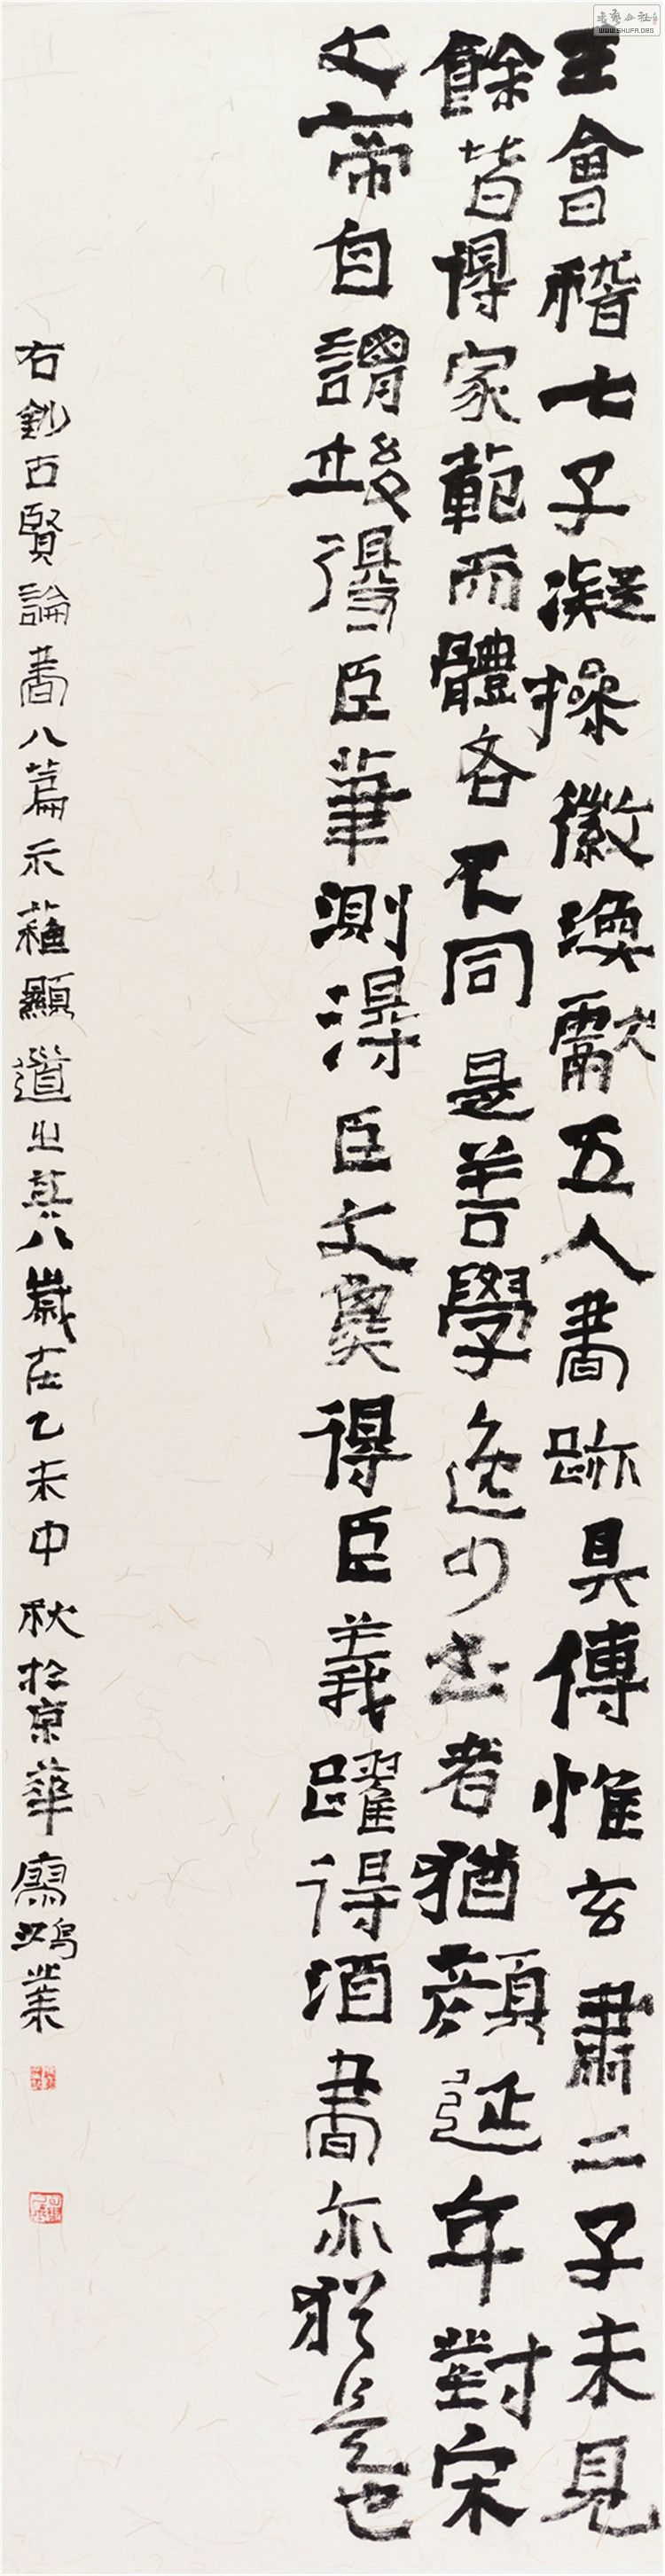 王會稽七子凝操徽渙獻五人書跡具傳惟玄肅二子未見
餘皆得家範而體各不同是善學逸少書者猶顏延年對宋
文帝自謂竣得臣筆測得臣文㚟得臣義躍得酒書亦猶是也
右鈔古賢論書八篇示蘊顯道之其八歲在乙未中秋於京華寫鴻業
書法公社
WWW.SHUFA.ORG